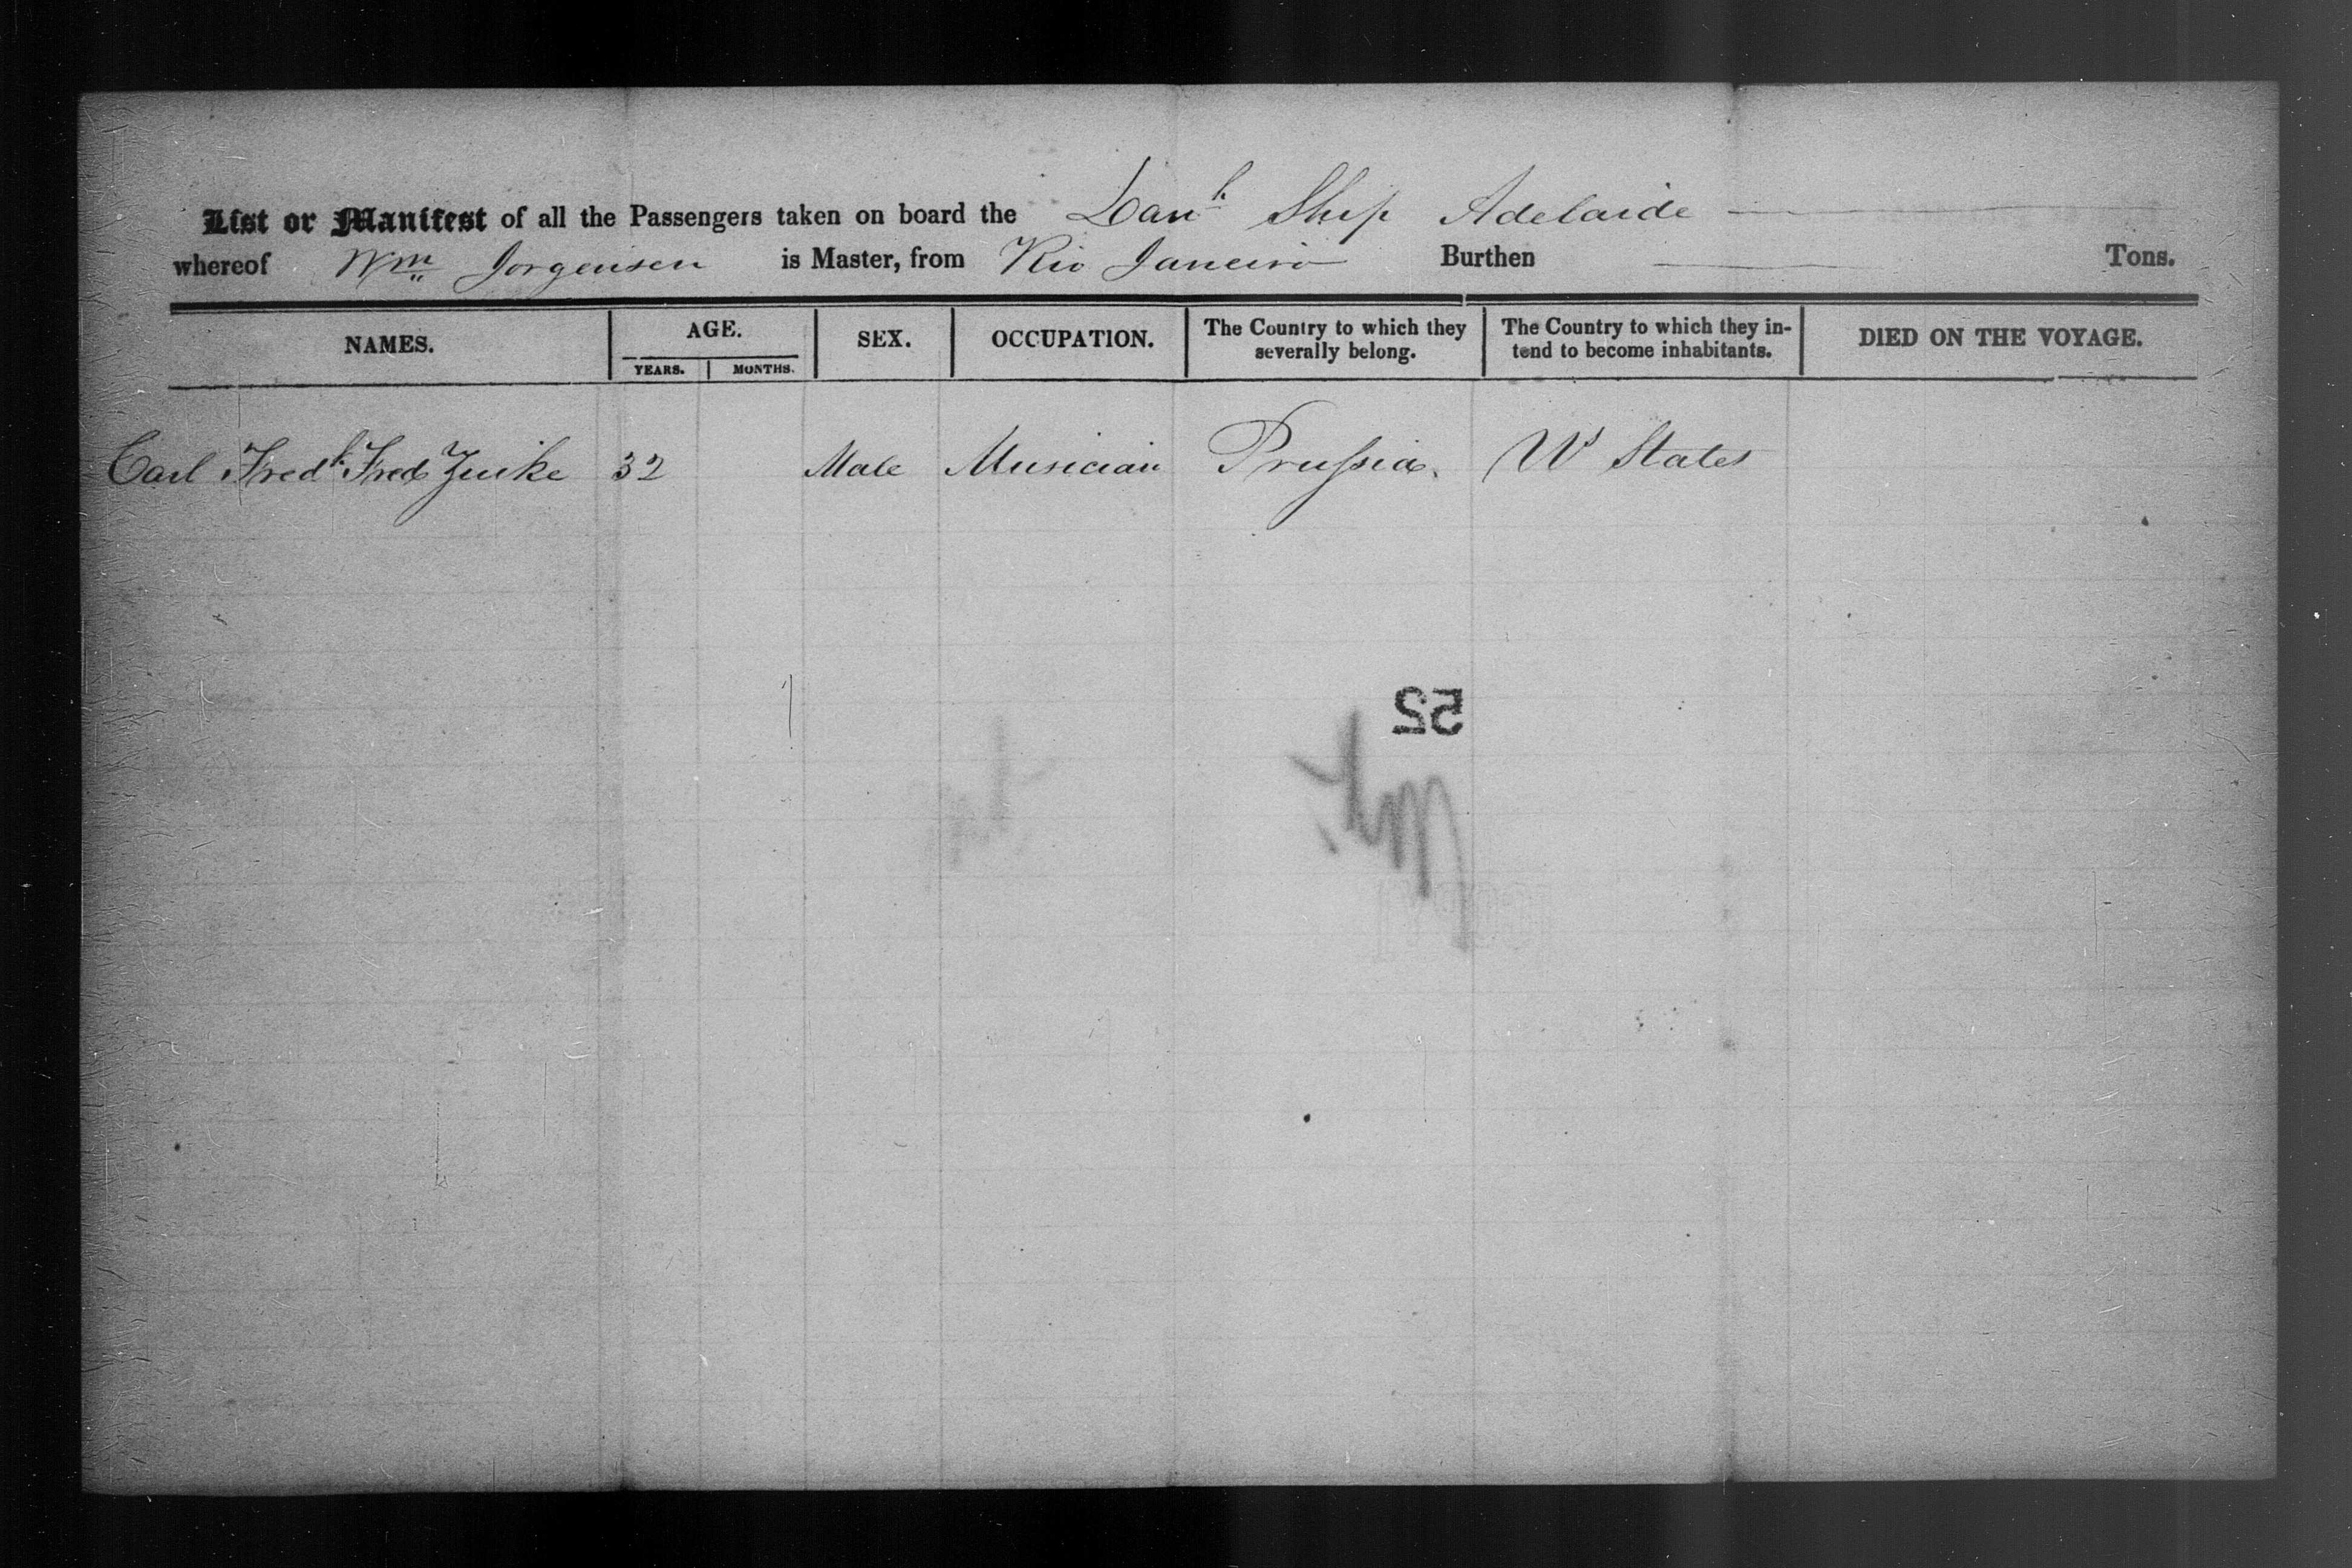 List or Manifest of all the Passengers taken on board the Danh Ship Adelaide
whereof Wm Jorgensen is Master, from Rio Janeiro Burthen Tons.
NAMES. AGE. YEARS. MONTHS. SEX. OCCUPATION. The Country to which they severally belong. The Country to which they intend to become inhabitants. DIED ON THE VOYAGE.
Carl Fredk Fred Zuike 32 Male Musician Prussia. Ud States
52